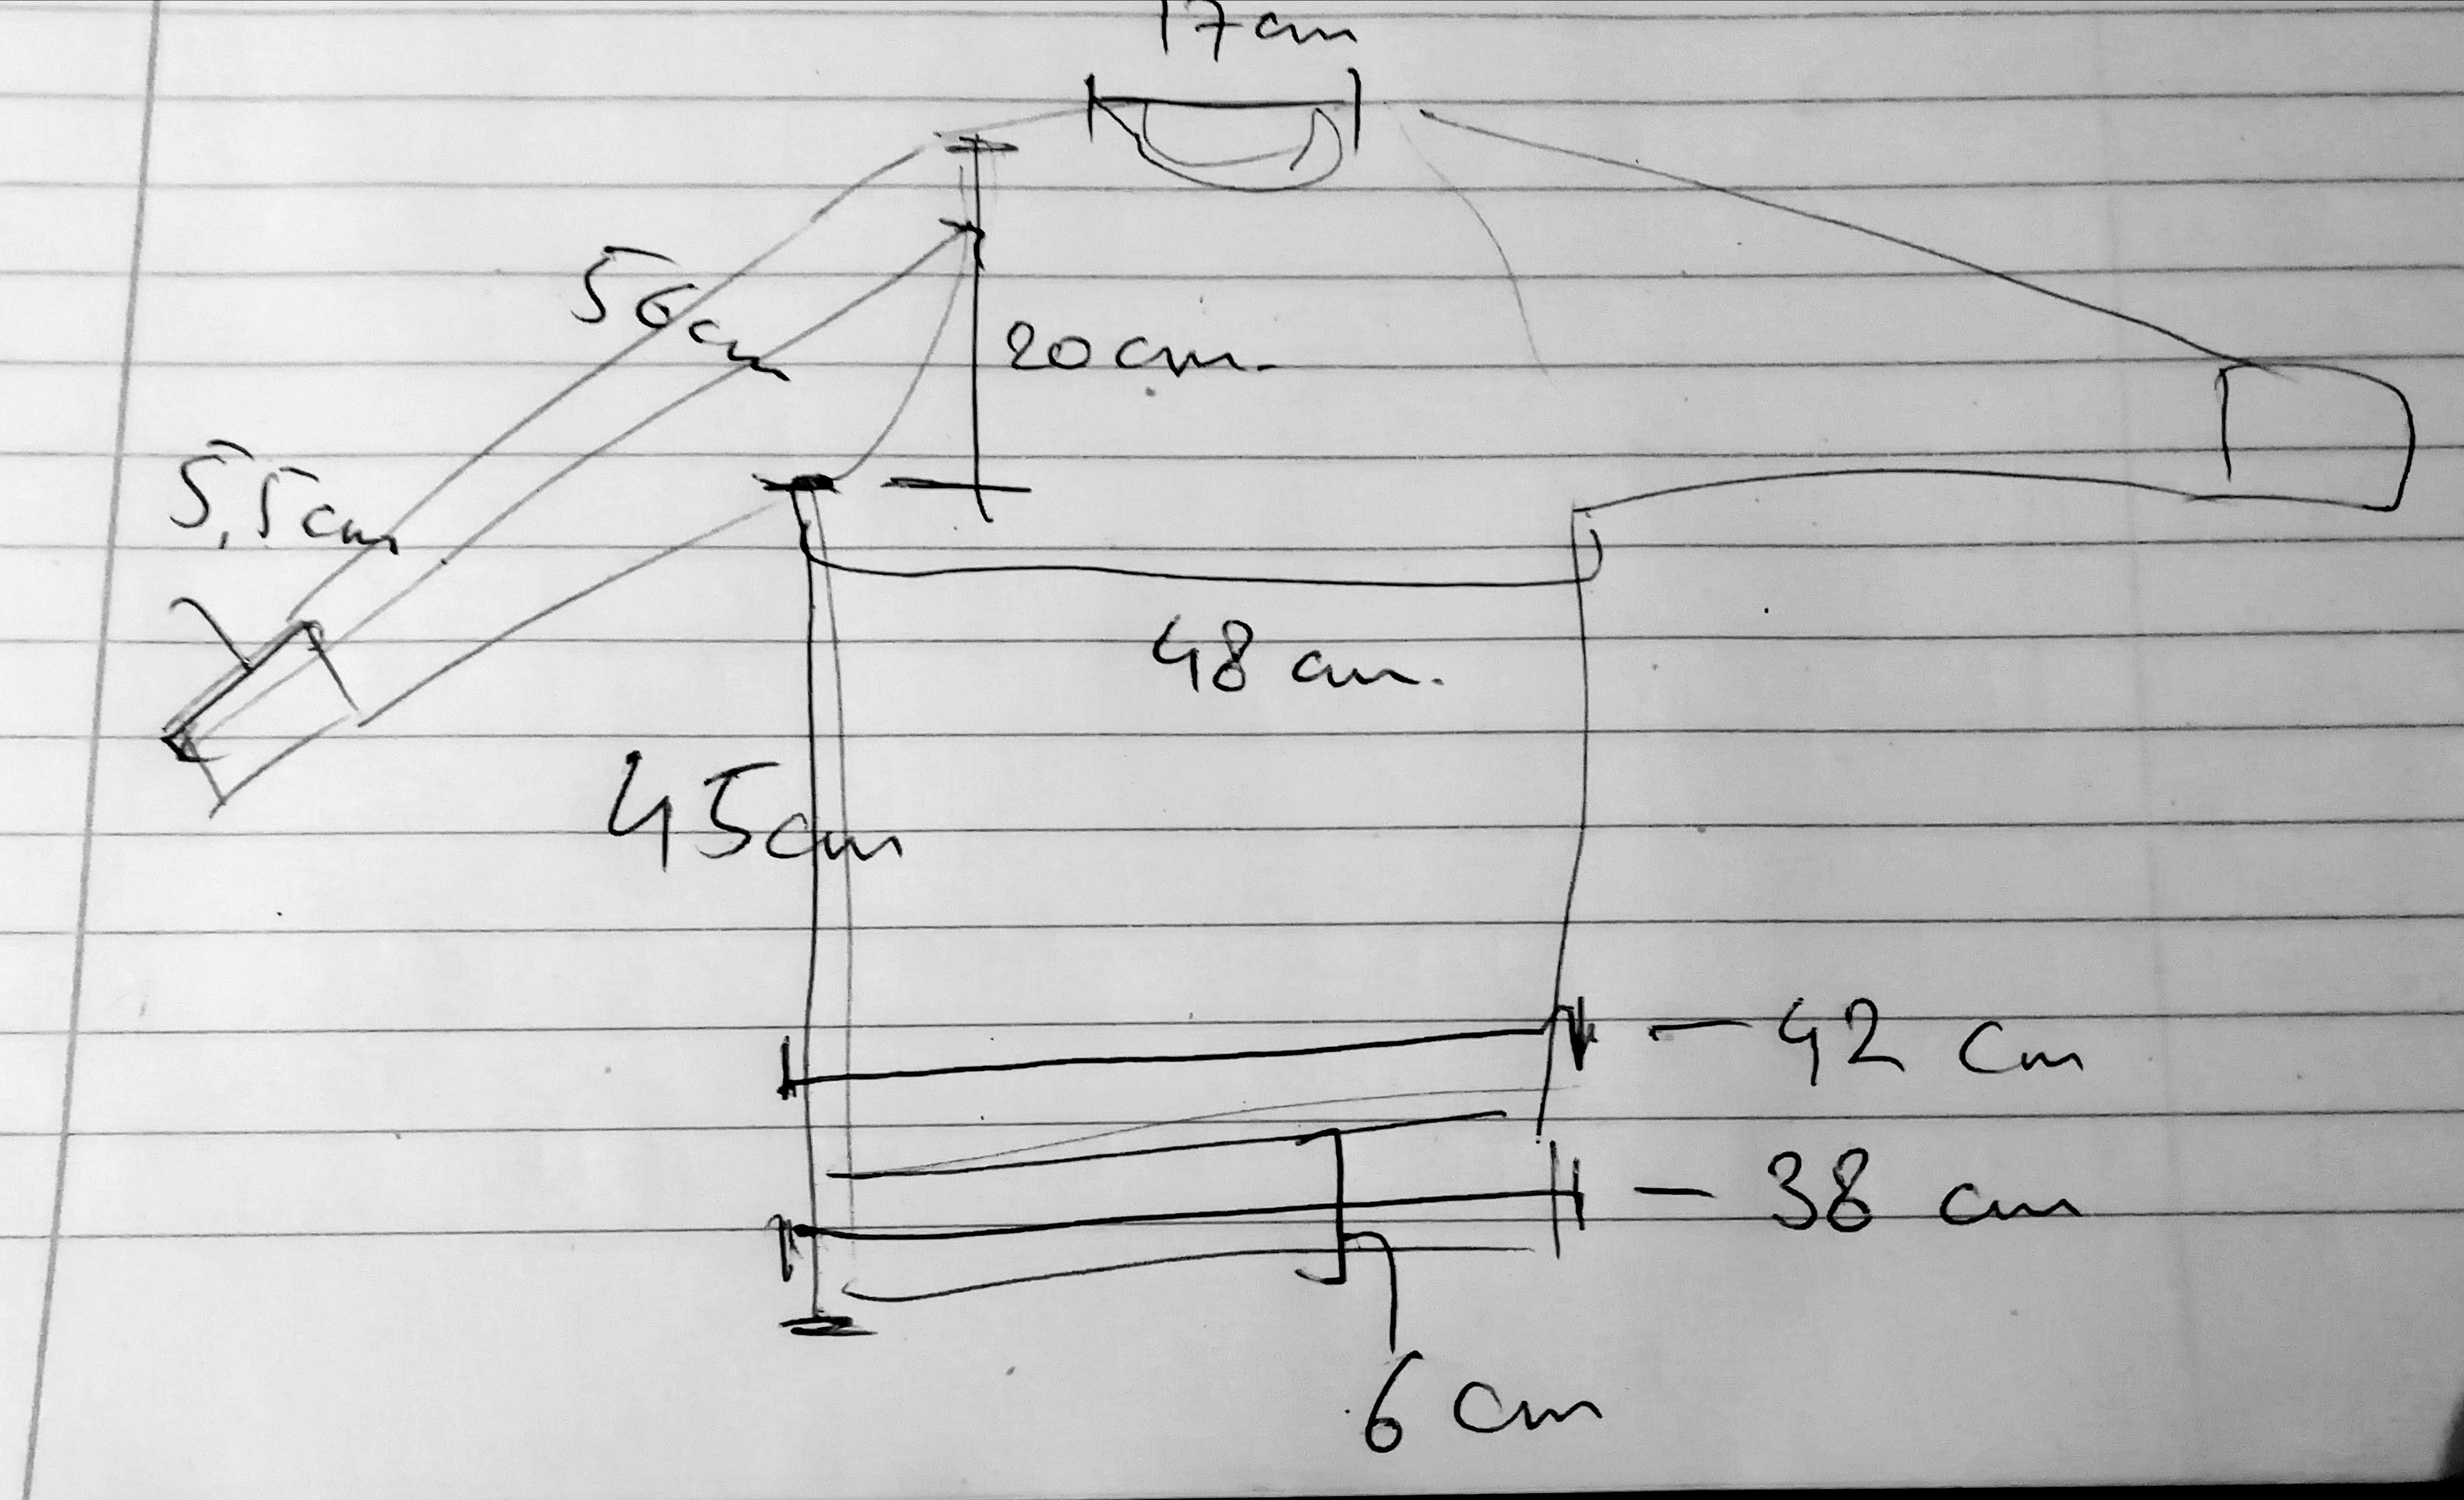 17 cm
56 cm
20 cm.
5,5 cm
48 cm.
45 cm
- 42 cm
- 38 cm
6 cm